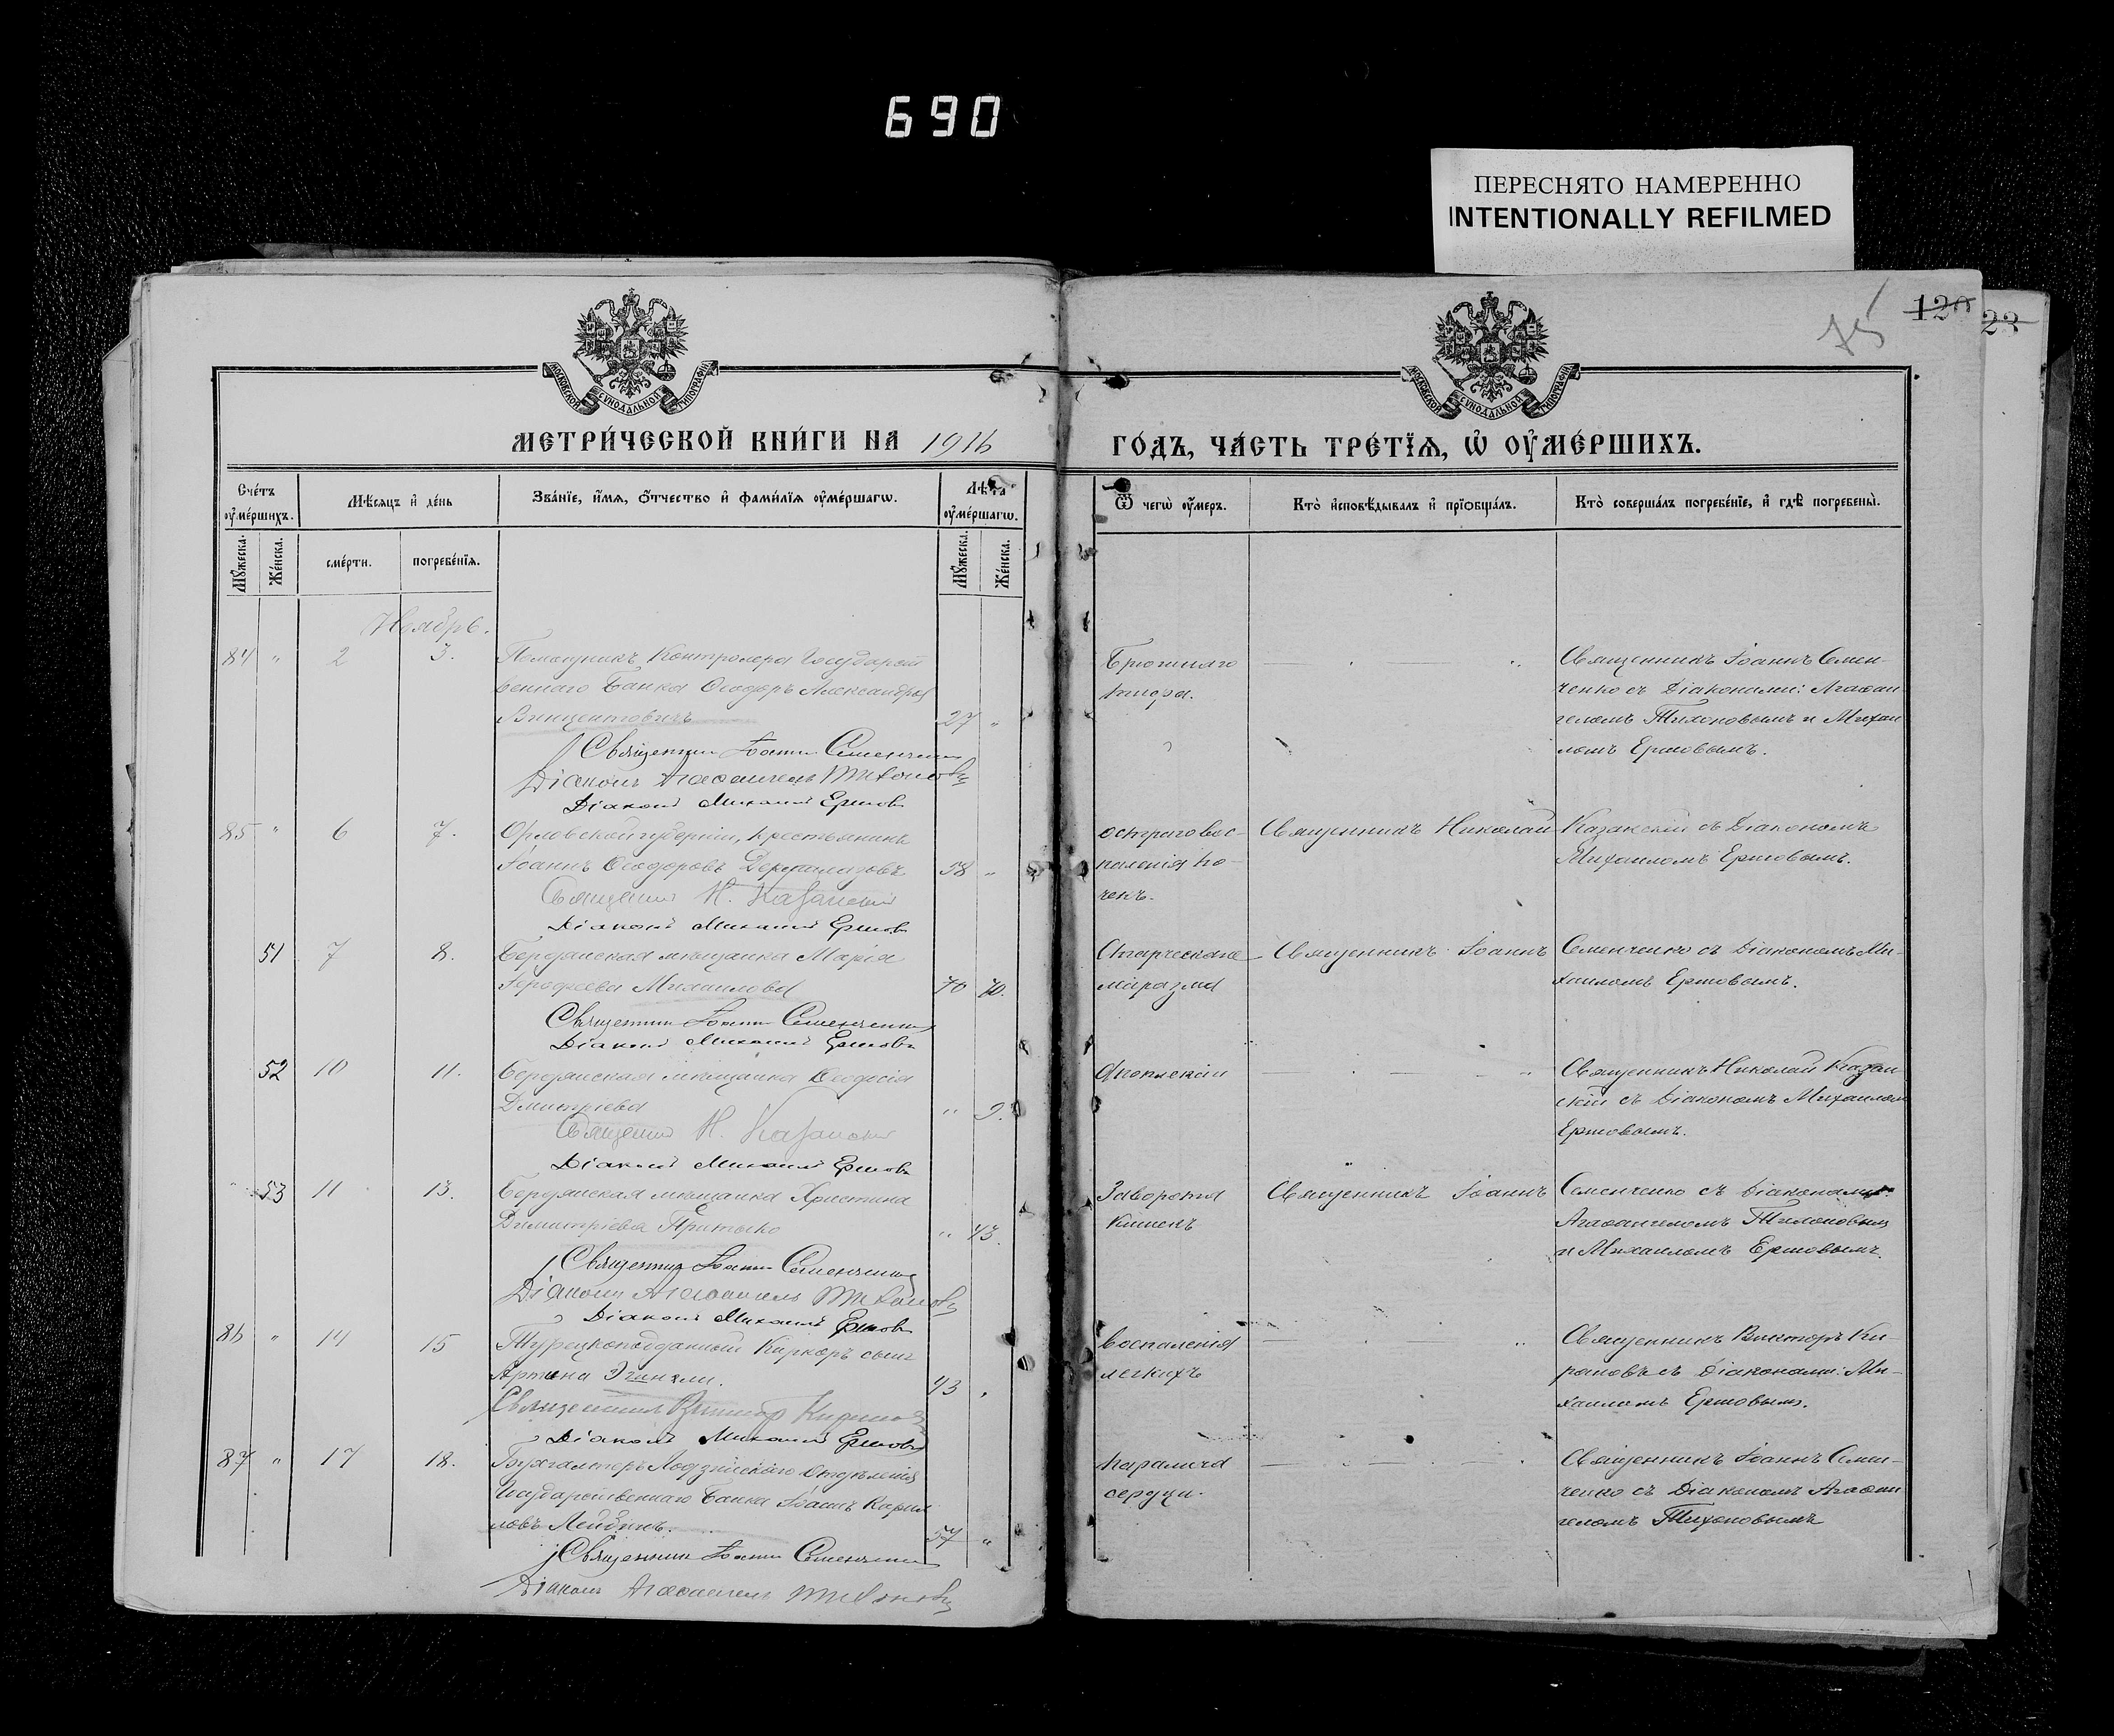 690
ПЕРЕСНЯТО НАМЕРЕННО
INTENTIONALLY REFILMED
75
120
23
МОСКОВСКОЙ СУНОДАЛЬНОЙ ТИПОГРАФІИ
МОСКОВСКОЙ СУНОДАЛЬНОЙ ТИПОГРАФІИ
МЕТРИ́ЧЕСКОЙ КНИ́ГИ НА 1916
ГО́ДЪ, ЧА́СТЬ ТРЕ́ТЇѦ, Ѡ҆ ОУ҆МЕ́РШИХЪ.
Сче́тъ оу҆ме́ршихъ.
Мѣ́сѧцъ и҆ де́нь
Зва́нїе, и҆́мѧ, ѻ҆́тчество и҆ фами́лїѧ оу҆ме́ршагѡ.
Лѣ́та оу҆ме́ршагѡ.
Ѿ чегѡ̀ оу҆́меръ.
Кто̀ и҆сповѣ́дывалъ и҆ прїѻбща́лъ.
Кто̀ соверша́лъ погребе́нїе, и҆ гдѣ̀ погребены̀.
Мꙋ́жеска.
Же́нска.
сме́рти.
погребе́нїѧ.
Мꙋ́жеска.
Же́нска.
Ноябрь.
84 " 2 3. Помощникъ Контролера Государст
веннаго Банка Ѳеодоръ Александров
Винцентовичъ 27 "
Священник Іоанн Семенченко
Діаконъ Агаѳангелъ Тихоновъ
Діаконъ Михаилъ Ершовъ
Брюшнаго
тифа.
Священникъ Іоаннъ Семен-
ченко съ Діаконами: Агаѳан
геломъ Тихоновымъ и Михаи
ломъ Ершовымъ.
85 " 6 7. Орловской губерніи, крестьянинъ
Іоаннъ Ѳеодоровъ 58 "
Священник Н. Казанский
Діаконъ Михаилъ Ершовъ
остраго вос-
паленія по-
чекъ.
Священникъ Николай Казанскій съ Діакономъ
Михаиломъ Ершовымъ.
51 7 8. Бердянская мѣщанка Марія
Іерофеева Михаилова 70 70.
Священник Іоанн Семенченко
Діаконъ Михаилъ Ершовъ
Старческаго
маразма
Священникъ Іоаннъ Семенченко съ Діакономъ Ми-
хаиломъ Ершовымъ.
52 10 11. Бердянская мѣщанка Ѳеодосія
Дмитріева "
Священник Н. Казанский
Діаконъ Михаилъ Ершовъ
Апоплексіи
Священникъ Николай Казан
скій съ Діакономъ Михаилом
Ершовымъ.
53 11 13. Бердянская мѣщанка Христина
Димитріева Притыко " 43.
Священник Іоанн Семенченко
Діаконъ Агаѳангелъ Тихоновъ
Діаконъ Михаилъ Ершовъ
Заворота
кишекъ
Священникъ Іоаннъ Семенченко съ Діаконами:
Агаѳангеломъ Тихоновым
и Михаиломъ Ершовымъ.
86 " 14 15 Турецкоподданный Киркоръ сынъ
Артина 43
Священникъ Виктор Кирановъ
Діаконъ Михаилъ Ершовъ
воспаленія
легкихъ
Священникъ Викторъ Ки-
рановъ съ Діаконами: Ми-
хаиломъ Ершовым.
87 " 17 18. Бухгалтеръ Лодзинскаго Отдѣленія
Государственнаго Банка Іоаннъ Карл
овъ 57 "
Священник Іоанн Семенченко
Діаконъ Агаѳангелъ Тихоновъ
паралича
сердца.
Священникъ Іоаннъ Семен-
ченко съ Діакономъ Агаѳан
геломъ Тихоновымъ